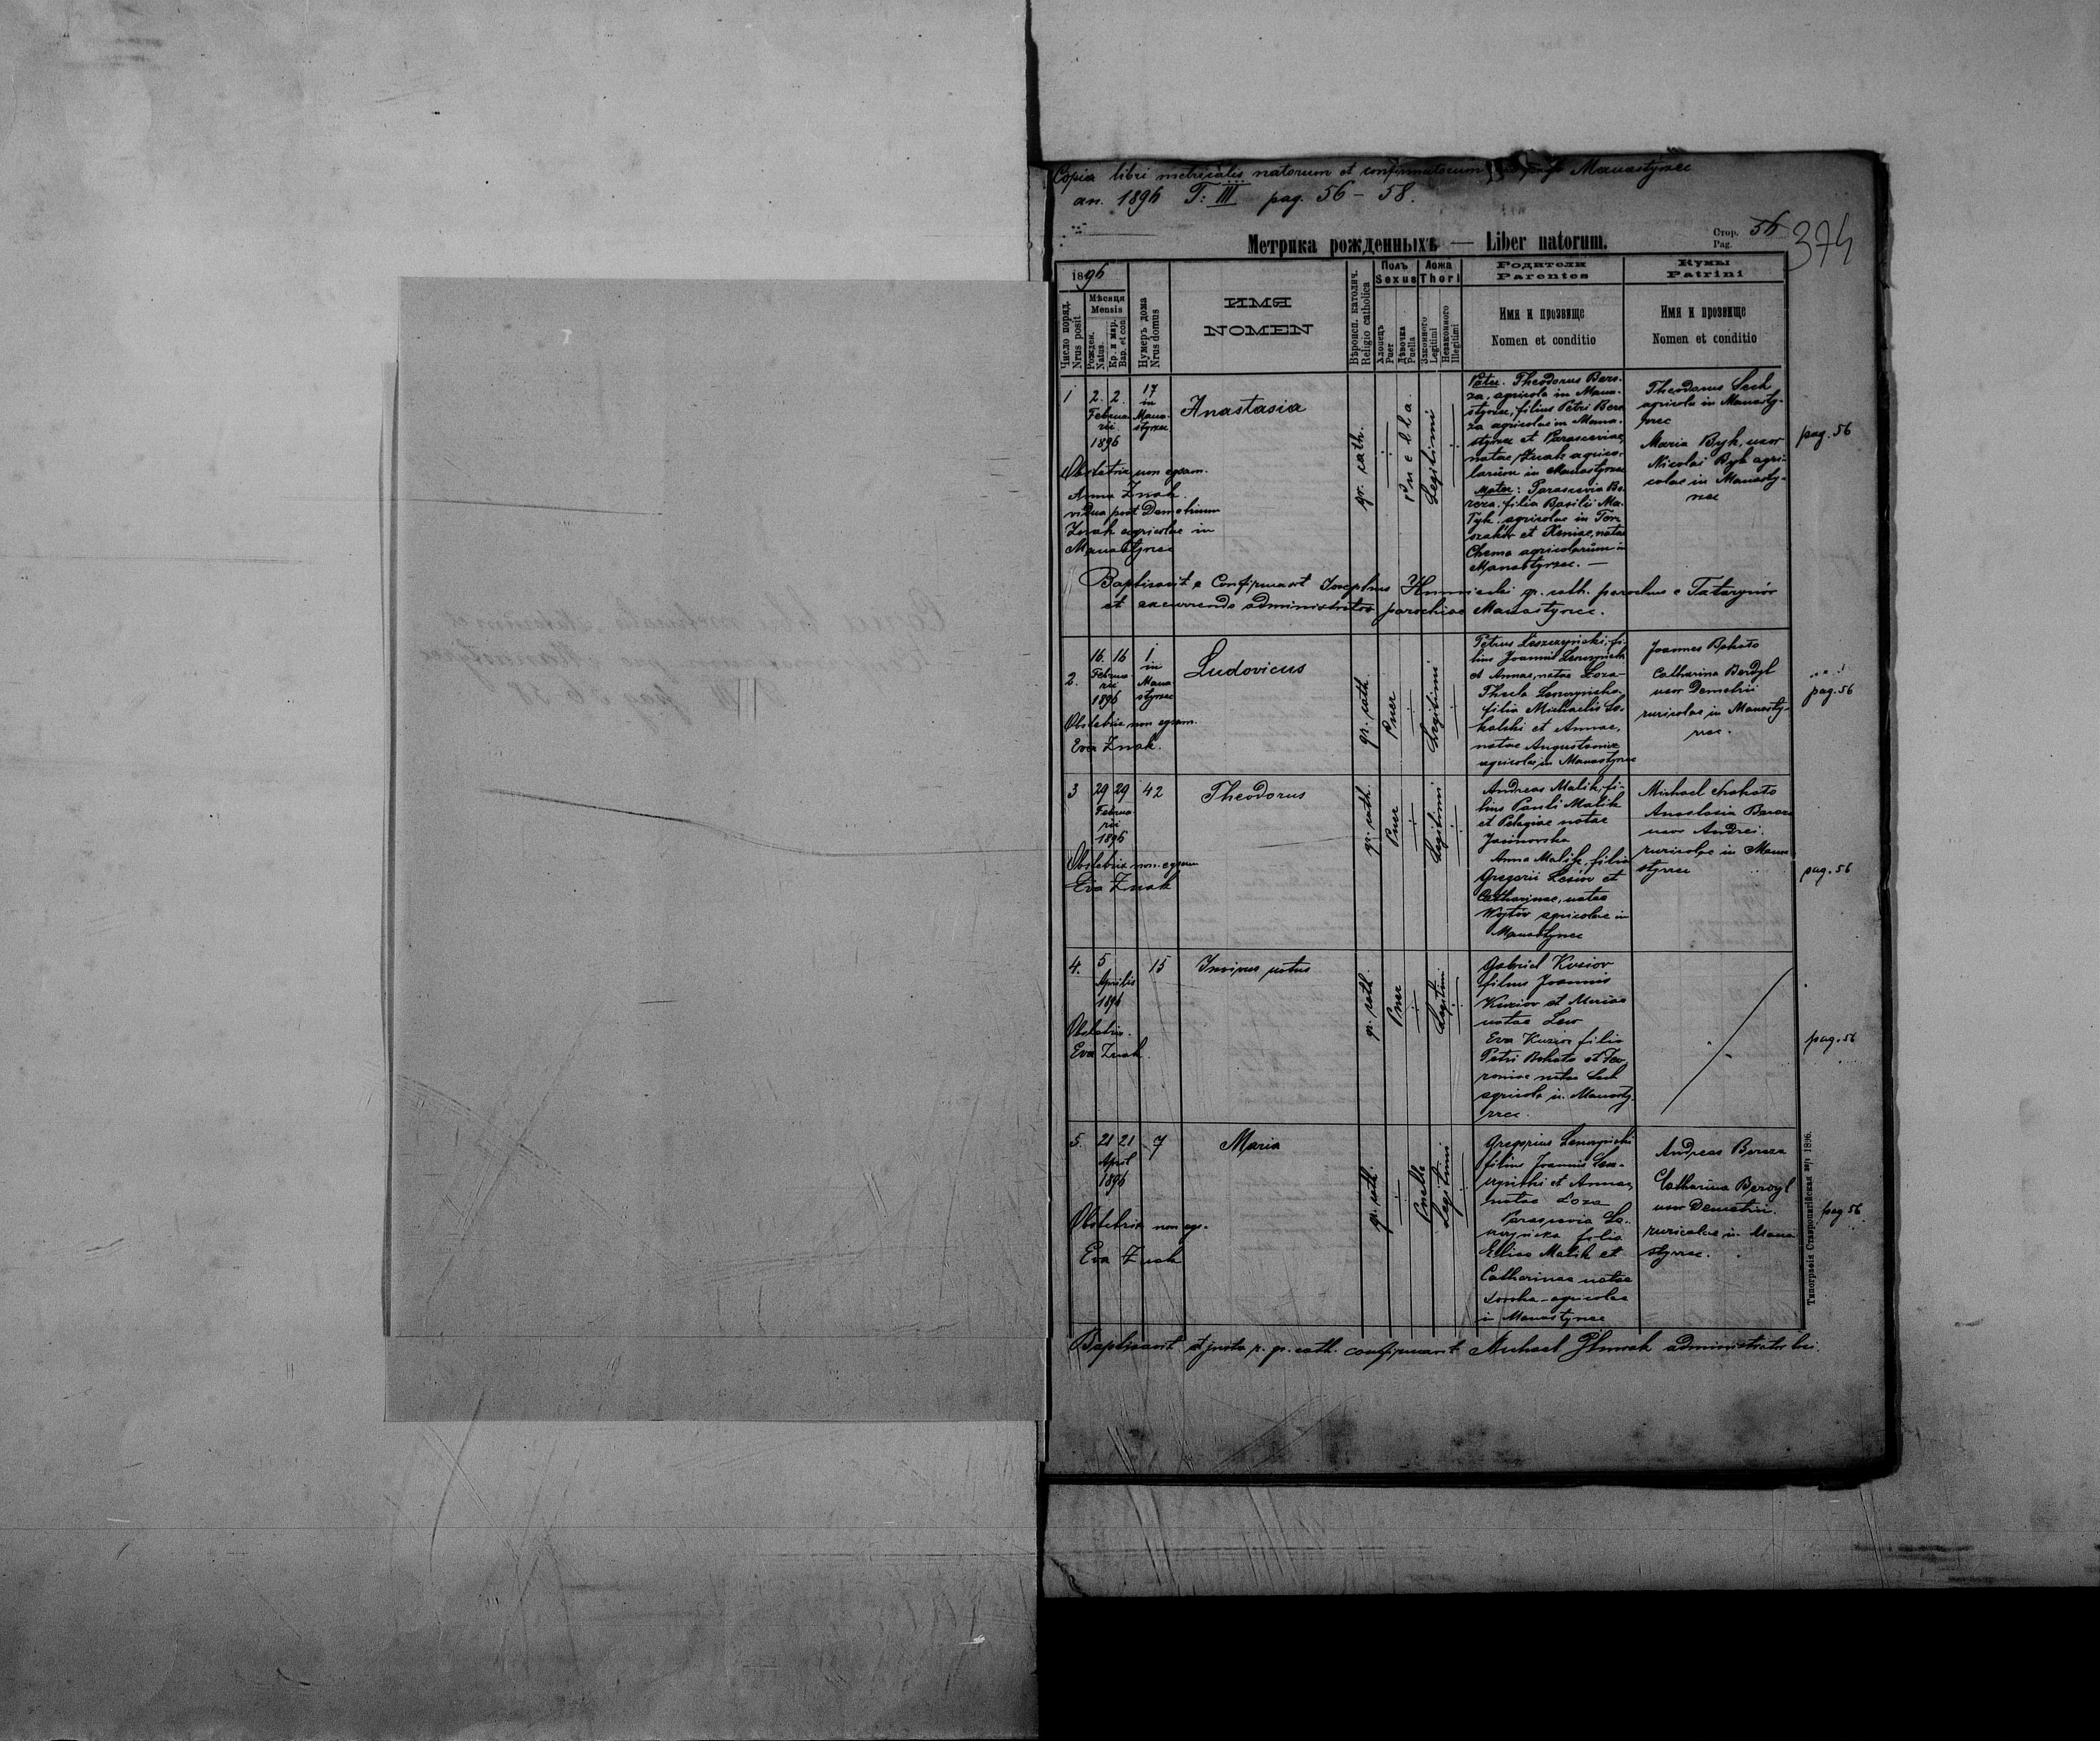 Copia libri metricalis natorum et confirmatorum Manastyrzec
an. 1896 T: III pag. 56 – 58.
Метрика рожденныхъ — Liber natorum.
Стор.
Pag. 56
374
1896
Число поряд.
Nrus posit
Мѣсяця
Mensis
Рожден.
Natus.
Кр. и мир.
Bap. et con
Нумеръ дома
Nrus domus
ИМЯ
NOMEN
Вѣроисп. католич.
Religio catholica
Полъ
Sexus
Хлопецъ
Puer
Дѣвочка
Puella
Ложа
Thori
Законного
Legitimi
Незаконного
Illegitimi
Родители
Parentes
Имя и прозвище
Nomen et conditio
Кумы
Patrini
Имя и прозвище
Nomen et conditio
1
2. 2.
Februa-
rii
1896
17
in
Mana-
styrzec
Anastasia
gr. cath.
Puella.
Legitimi
Pater. Theodorus Bere-
za, agricola in Mana-
styrzec, filius Petri Bere
za agricolae in Mana-
styrzec et Parasceviae,
natae Znak agrico-
larum in Manastyrzec
Mater: Parascevia Be-
reza, filia Basilii Ma-
Tyk. agricolae in
et Xeniae, natae
Chema agricolarum in
Manastyrzec. —
Theodorus Lech
agricola in Manasty-
rzec
Maria Byk, uxor
Nicolai Byk agri-
colae in Manasty-
rzec
pag. 56
Obstetrix non exam.
Anna Znak.
vidua post Demetrium
Znak agricolae in
Manastyrzec
Baptisavit e Confirmavit Josephus gr. cath. parochus e Tatarynów
et excurrendo administrator parochiae Manastyrzec.
2.
16. 16
Februa-
rii
1896
1
in
Mana-
styrzec
Ludovicus
gr. cath.
Puer
Legitimi
Petrus Leszczyński, fi-
lius Joannis
et Annae, natae Loza—
Thecla
filia Michaelis
et Annae,
natae
agricolae in Manastyrzec
Joannes Bohato
Catharina Berdyl
uxor Demetrii
ruricolae in Manasty-
rzec.
pag. 56
Obstetrix non exam.
Eva Znak.
3
29 29
Februa
rii
1896
42
Theodorus
gr. cath.
Puer
Legitimi
Andreas Malik, fi-
lius Pauli Malik
et Pelagiae natae
Anna Malik, filia
Gregorii Lesiov et
Catharinae, natae
Wojtów agricolae in
Manastyrzec
Michael
Anastasia Bereza
uxor Andrei.
ruricolae in Mana
styrzec
pag. 56
Obstetrix non exam
Eva Znak
4.
5
Aprilis
1896
15
gr. cath.
Puer
Legitim
Gabriel Kuziov
filius Joannis
Kuziov et Mariae
natae Lew
Eva Kuziov filia
Petri Bohato et Fev
roniae natae Lech
agricola in Manasty
rzec.
pag. 56
Obstetrix.
Eva Znak.
5.
21 21
April
1896
7
Maria
gr. cath.
Puella
Legitimi
Gregorius
filius Joannis
et Annae
natae Loza
Parascevia
filia
Eliae Malik et
Catharinae natae
agricolae
in Manastyrzec
Andreas Bereza
Catharina Berdyl
uxor Demetrii.
ruricolae in Mana
styrzec.
pag 56
Obstetrix non
Eva Znak
Baptisavit et gr. cath. confirmavit Michael administrator loci.
Типографія Ставропигійская 1896.